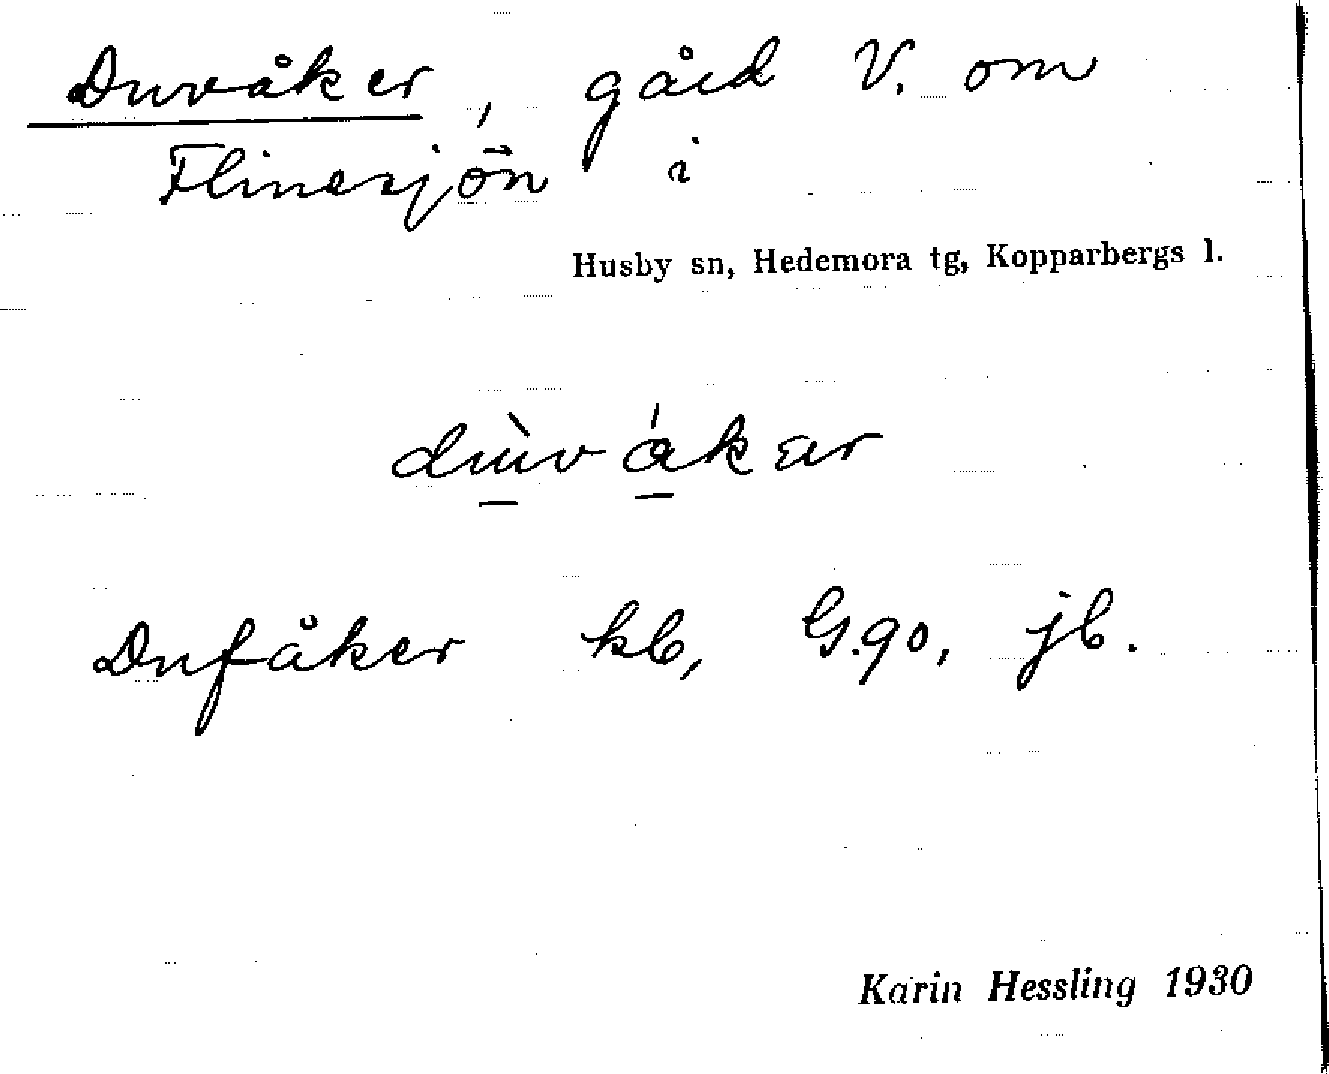 Duvåker, gård V. om
Flinesjön i
Husby sn, Hedemora tg, Kopparbergs l.
dùvákar
Dufåker kb, G.go, jb.
Karin Hessling 1930